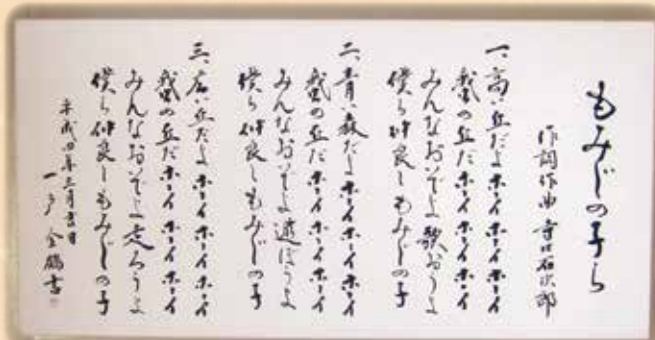 もみじの子ら
作詞作曲 寺口 次郎
一、高い丘だよ ホーイ ホーイ ホーイ
の丘だ ホーイ ホーイ ホーイ
みんなおいでよ 歌おうよ
僕ら仲良しもみじの子
二、青い森だよ ホーイ ホーイ ホーイ
の丘だ ホーイ ホーイ ホーイ
みんなおいでよ 遊ぼうよ
僕ら仲良しもみじの子
三、 い丘だよ ホーイ ホーイ ホーイ
の丘だ ホーイ ホーイ ホーイ
みんなおいでよ 走ろうよ
僕ら仲良しもみじの子
平成四年三月吉日
一戸 書